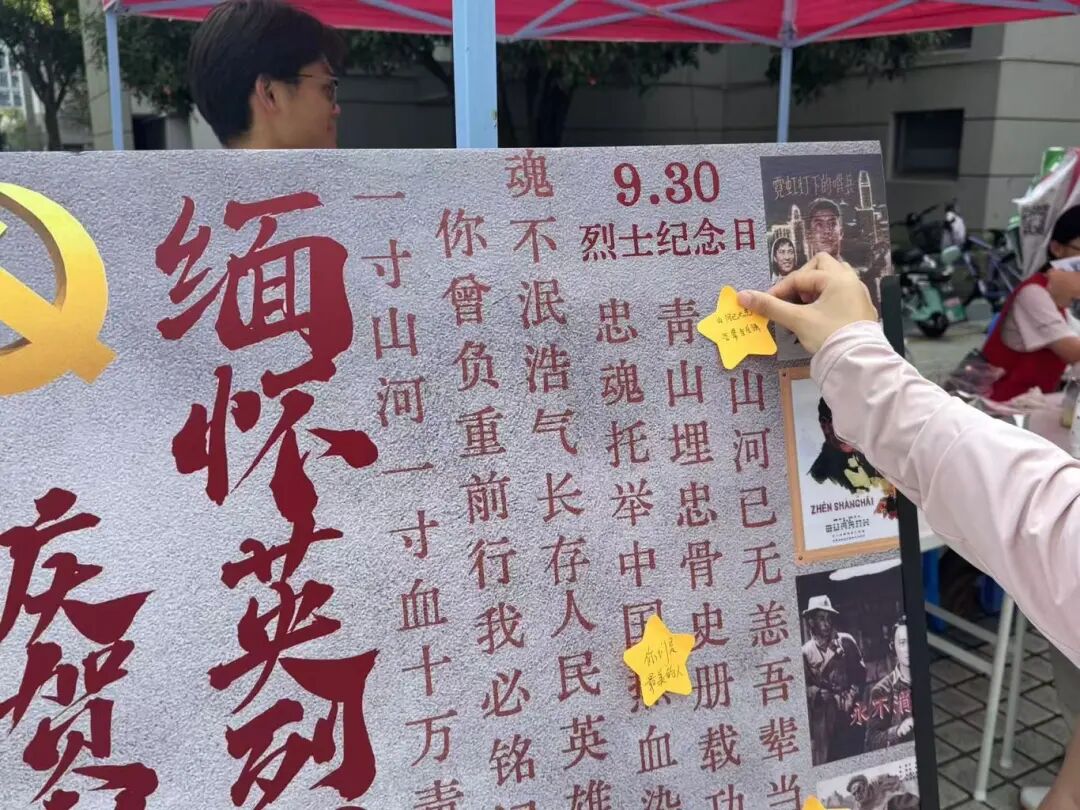 9.30
烈士纪念日
霓虹灯下的哨兵
山河已无恙吾辈当
青山埋忠骨史册载功
忠魂托举中国 血染
魂不泯浩气长存人民英雄
你曾负重前行我必铭
一寸山河一寸血十万
缅怀英烈
庆贺
你们是
最美的人
ZHÉN SHANGHAI
永不消